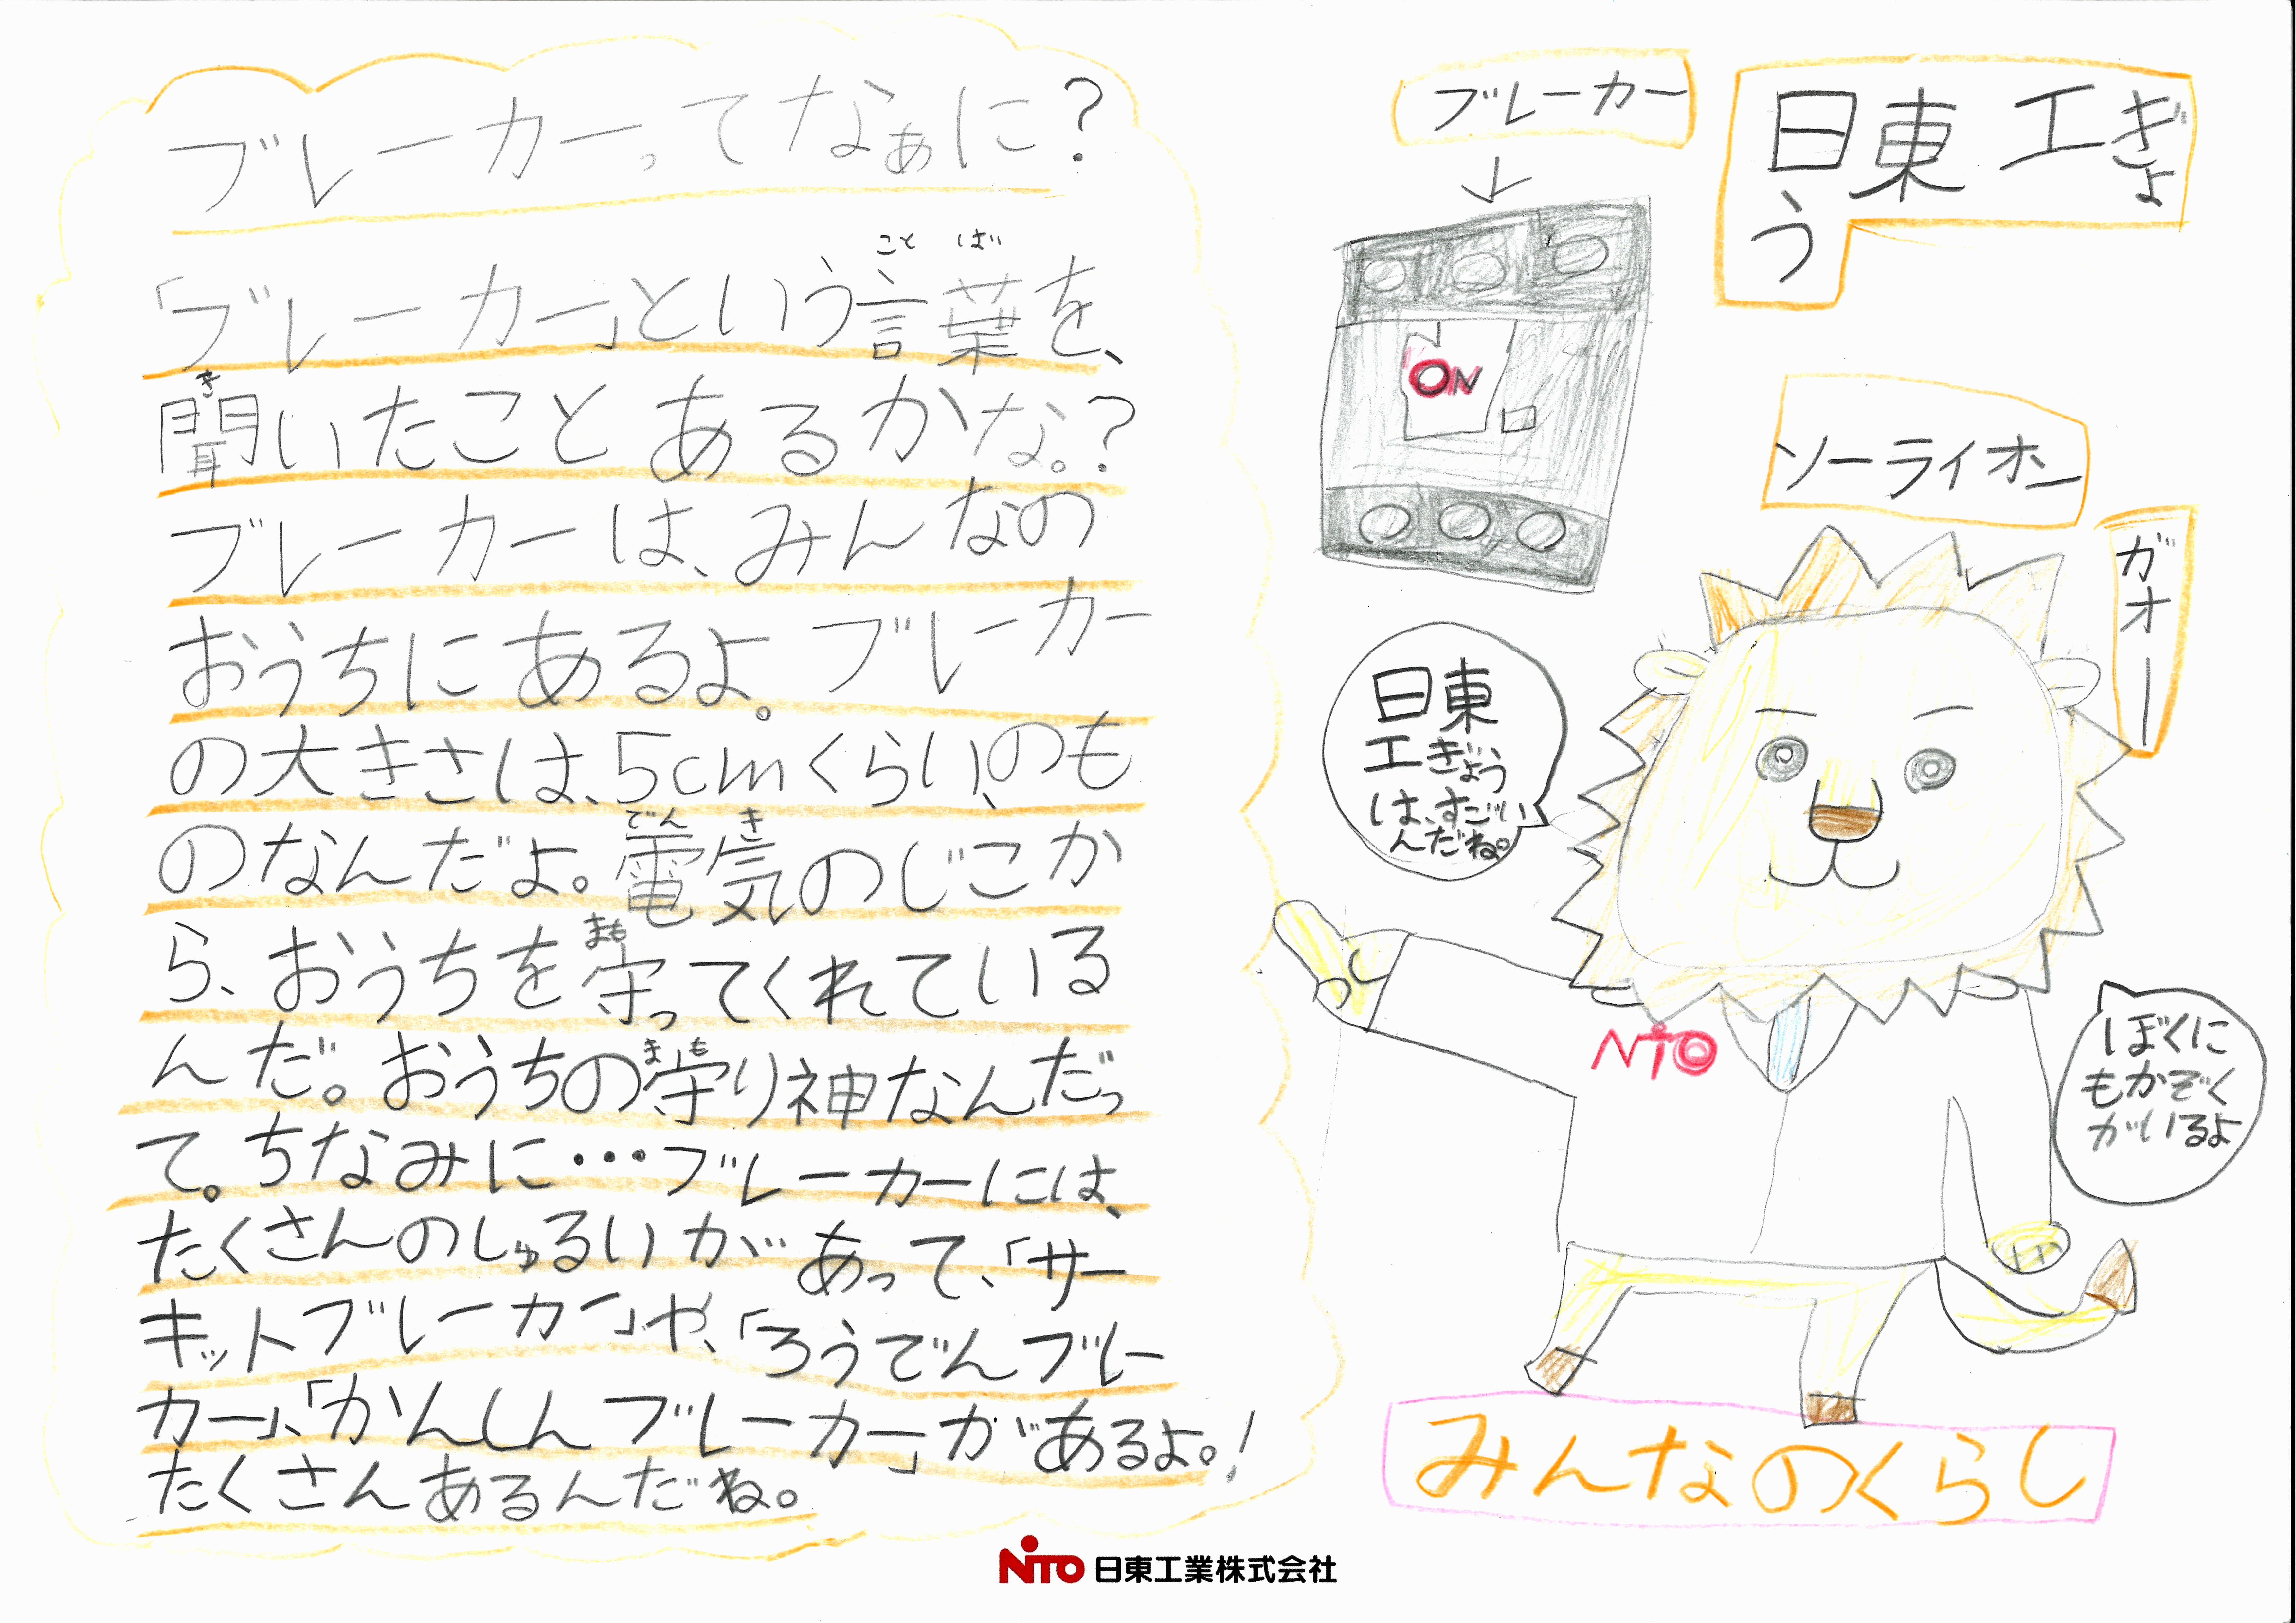 ブレーカーってなぁに？
「ブレーカー」という言葉を、
ことば
聞いたことあるかな。？
き
ブレーカーは、みんなの
おうちにあるよ。ブレーカー
の大きさは、5cmくらい、のも
のなんだよ。電気のじこか
でんき
ら、おうちを守ってくれている
まも
んだ。おうちの守り神なんだっ
まも
て。ちなみに…ブレーカーには、
たくさんのしゅるいがあって、「サー
キットブレーカー」や、「ろうでんブレー
カー」、「かんしんブレーカー」があるよ。！
たくさんあるんだね。
ブレーカー
↓
ON
日東工ぎょ
う
ソーライオン
ガオー
日東
工ぎょう
は、すごい
んだね。
NITO
ぼくに
もかぞく
がいるよ
みんなのくらし
NITO 日東工業株式会社